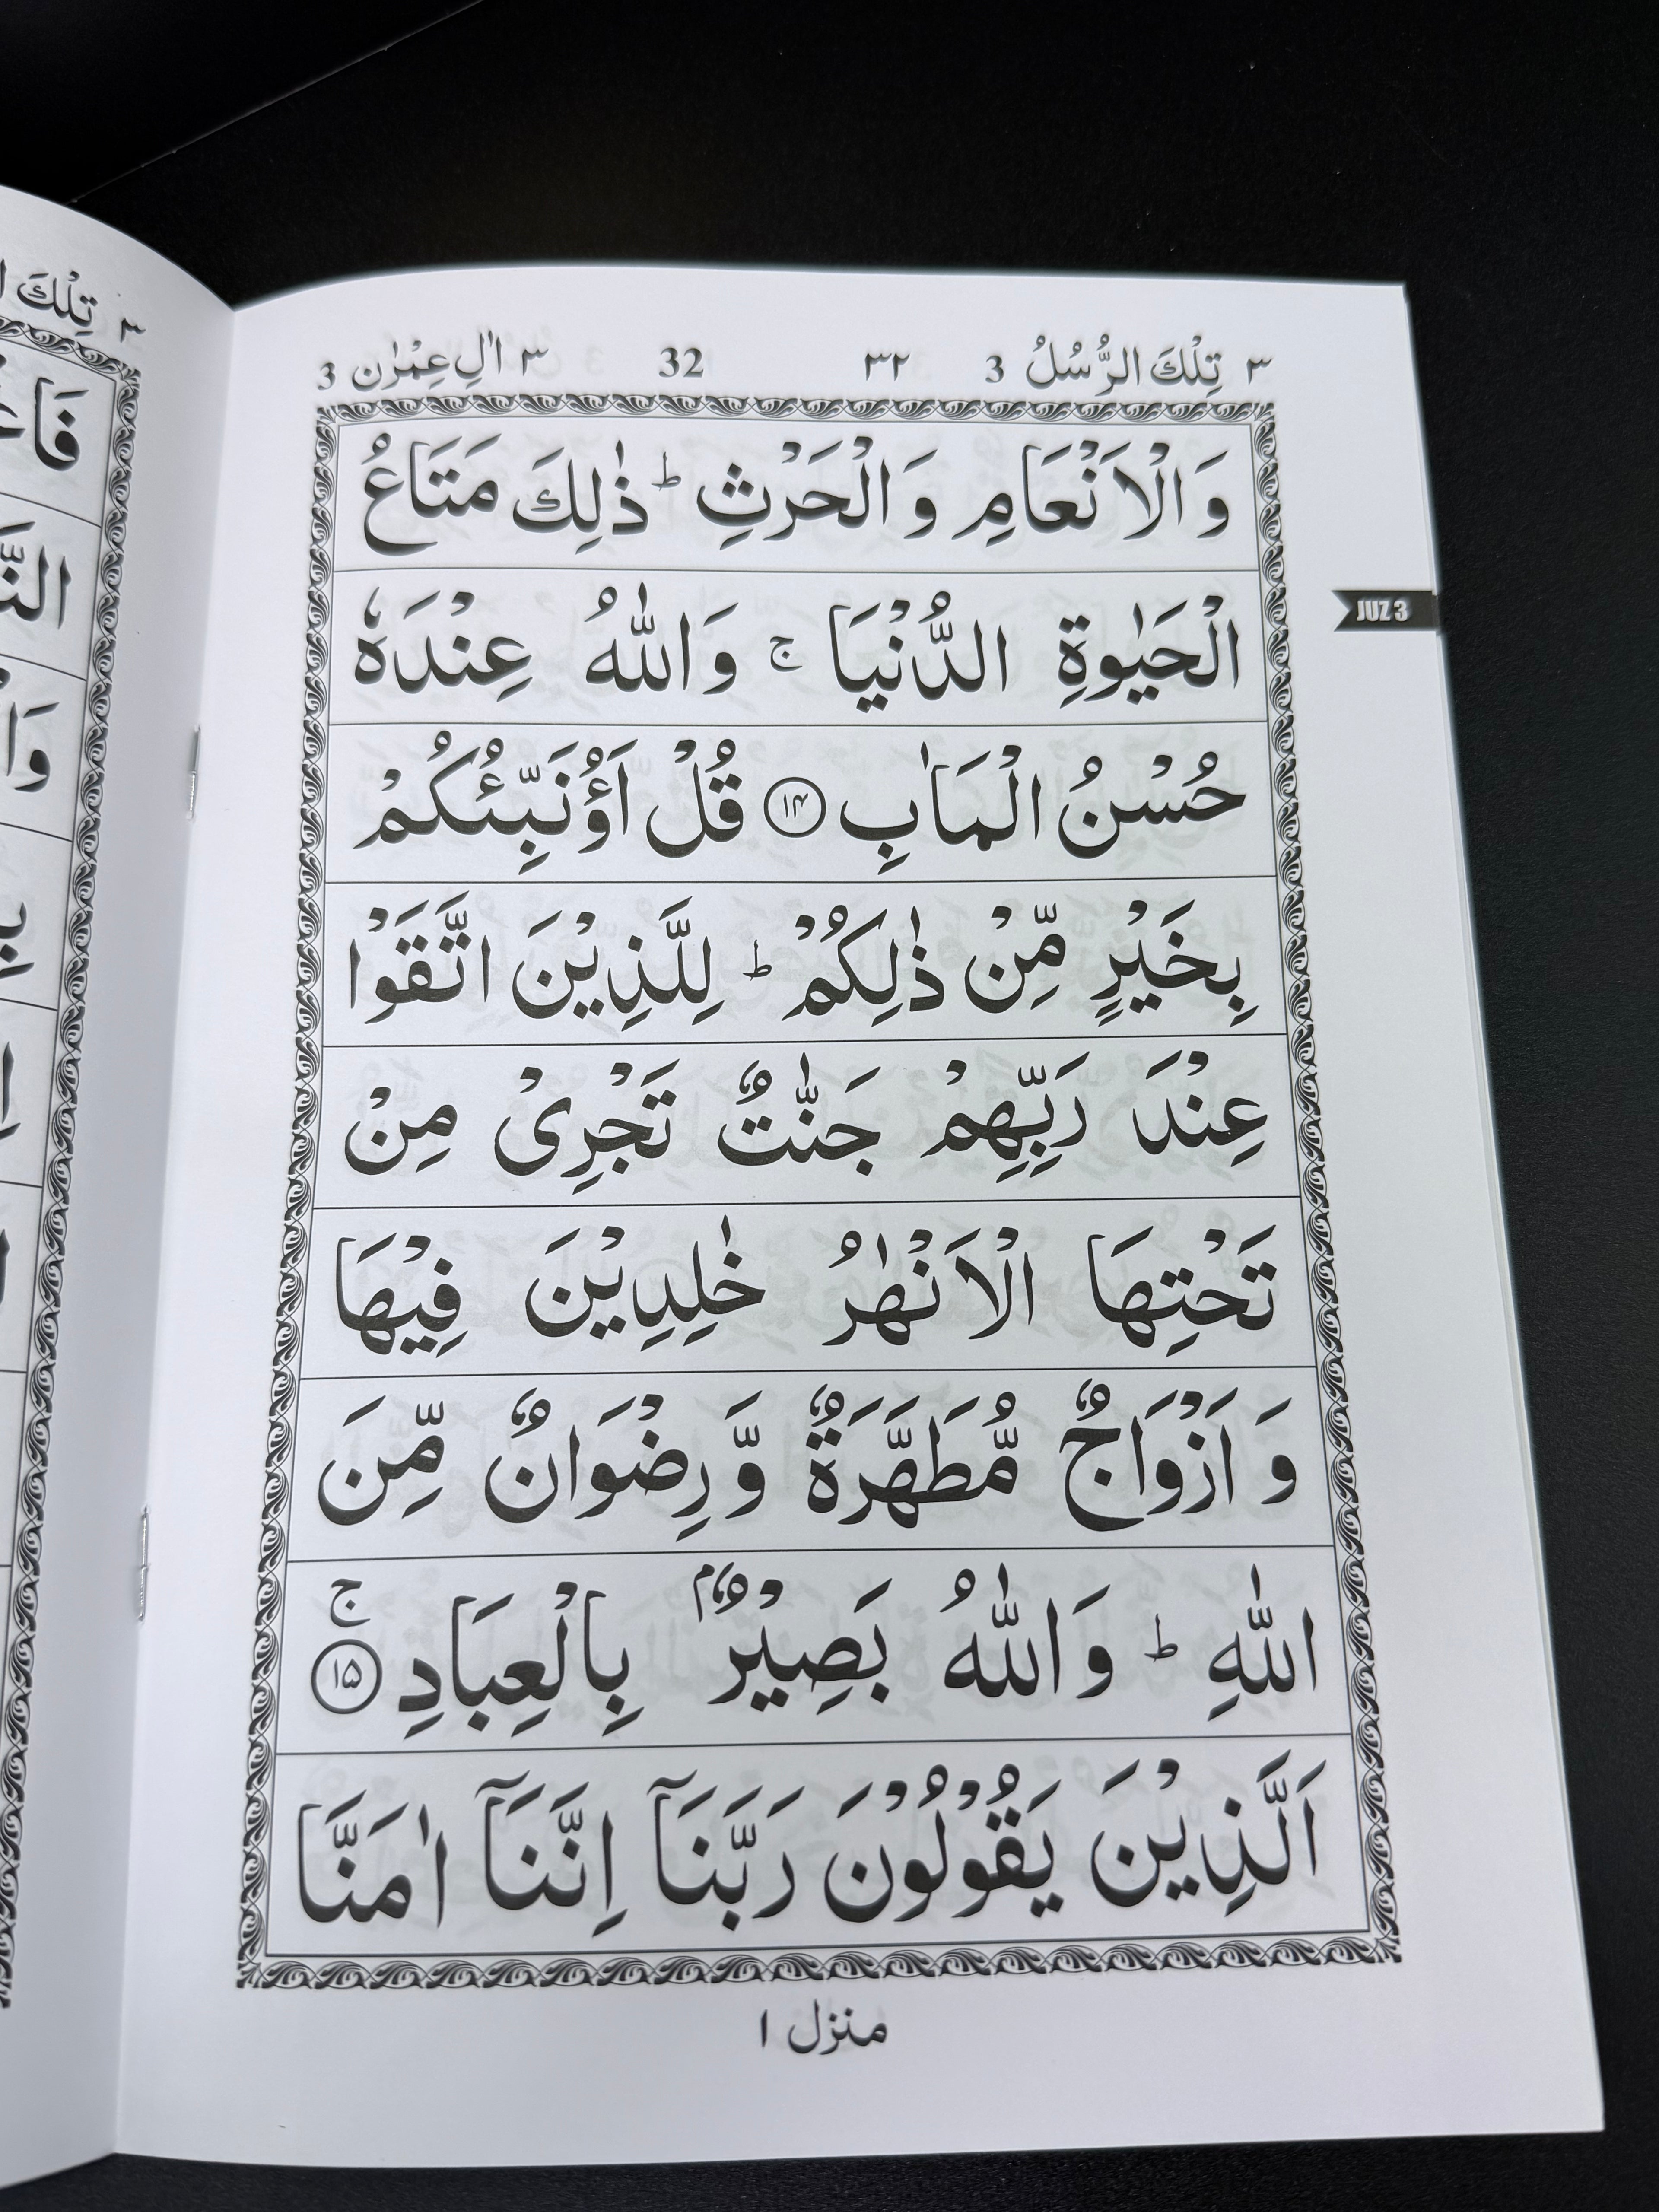 ٣ تِلْكَ الرُّسُلُ 3 ٣٢ 32 ٣ اٰلِ عِمْرٰن 3
وَالْاَنْعَامِ وَالْحَرْثِ ؕ ذٰلِكَ مَتَاعُ
الْحَيٰوةِ الدُّنْيَا ۚ وَاللّٰهُ عِنْدَهٗ
حُسْنُ الْمَاٰبِ ۝۱۴ قُلْ اَؤُنَبِّئُكُمْ
بِخَيْرٍ مِّنْ ذٰلِكُمْ ؕ لِلَّذِيْنَ اتَّقَوْا
عِنْدَ رَبِّهِمْ جَنّٰتٌ تَجْرِىْ مِنْ
تَحْتِهَا الْاَنْهٰرُ خٰلِدِيْنَ فِيْهَا
وَ اَزْوَاجٌ مُّطَهَّرَةٌ وَّرِضْوَانٌ مِّنَ
اللّٰهِ ؕ وَاللّٰهُ بَصِيْرٌۢ بِالْعِبَادِ ۝۱۵ ۚ
اَلَّذِيْنَ يَقُوْلُوْنَ رَبَّنَاۤ اِنَّنَاۤ اٰمَنَّا
منزل ۱
JUZ 3